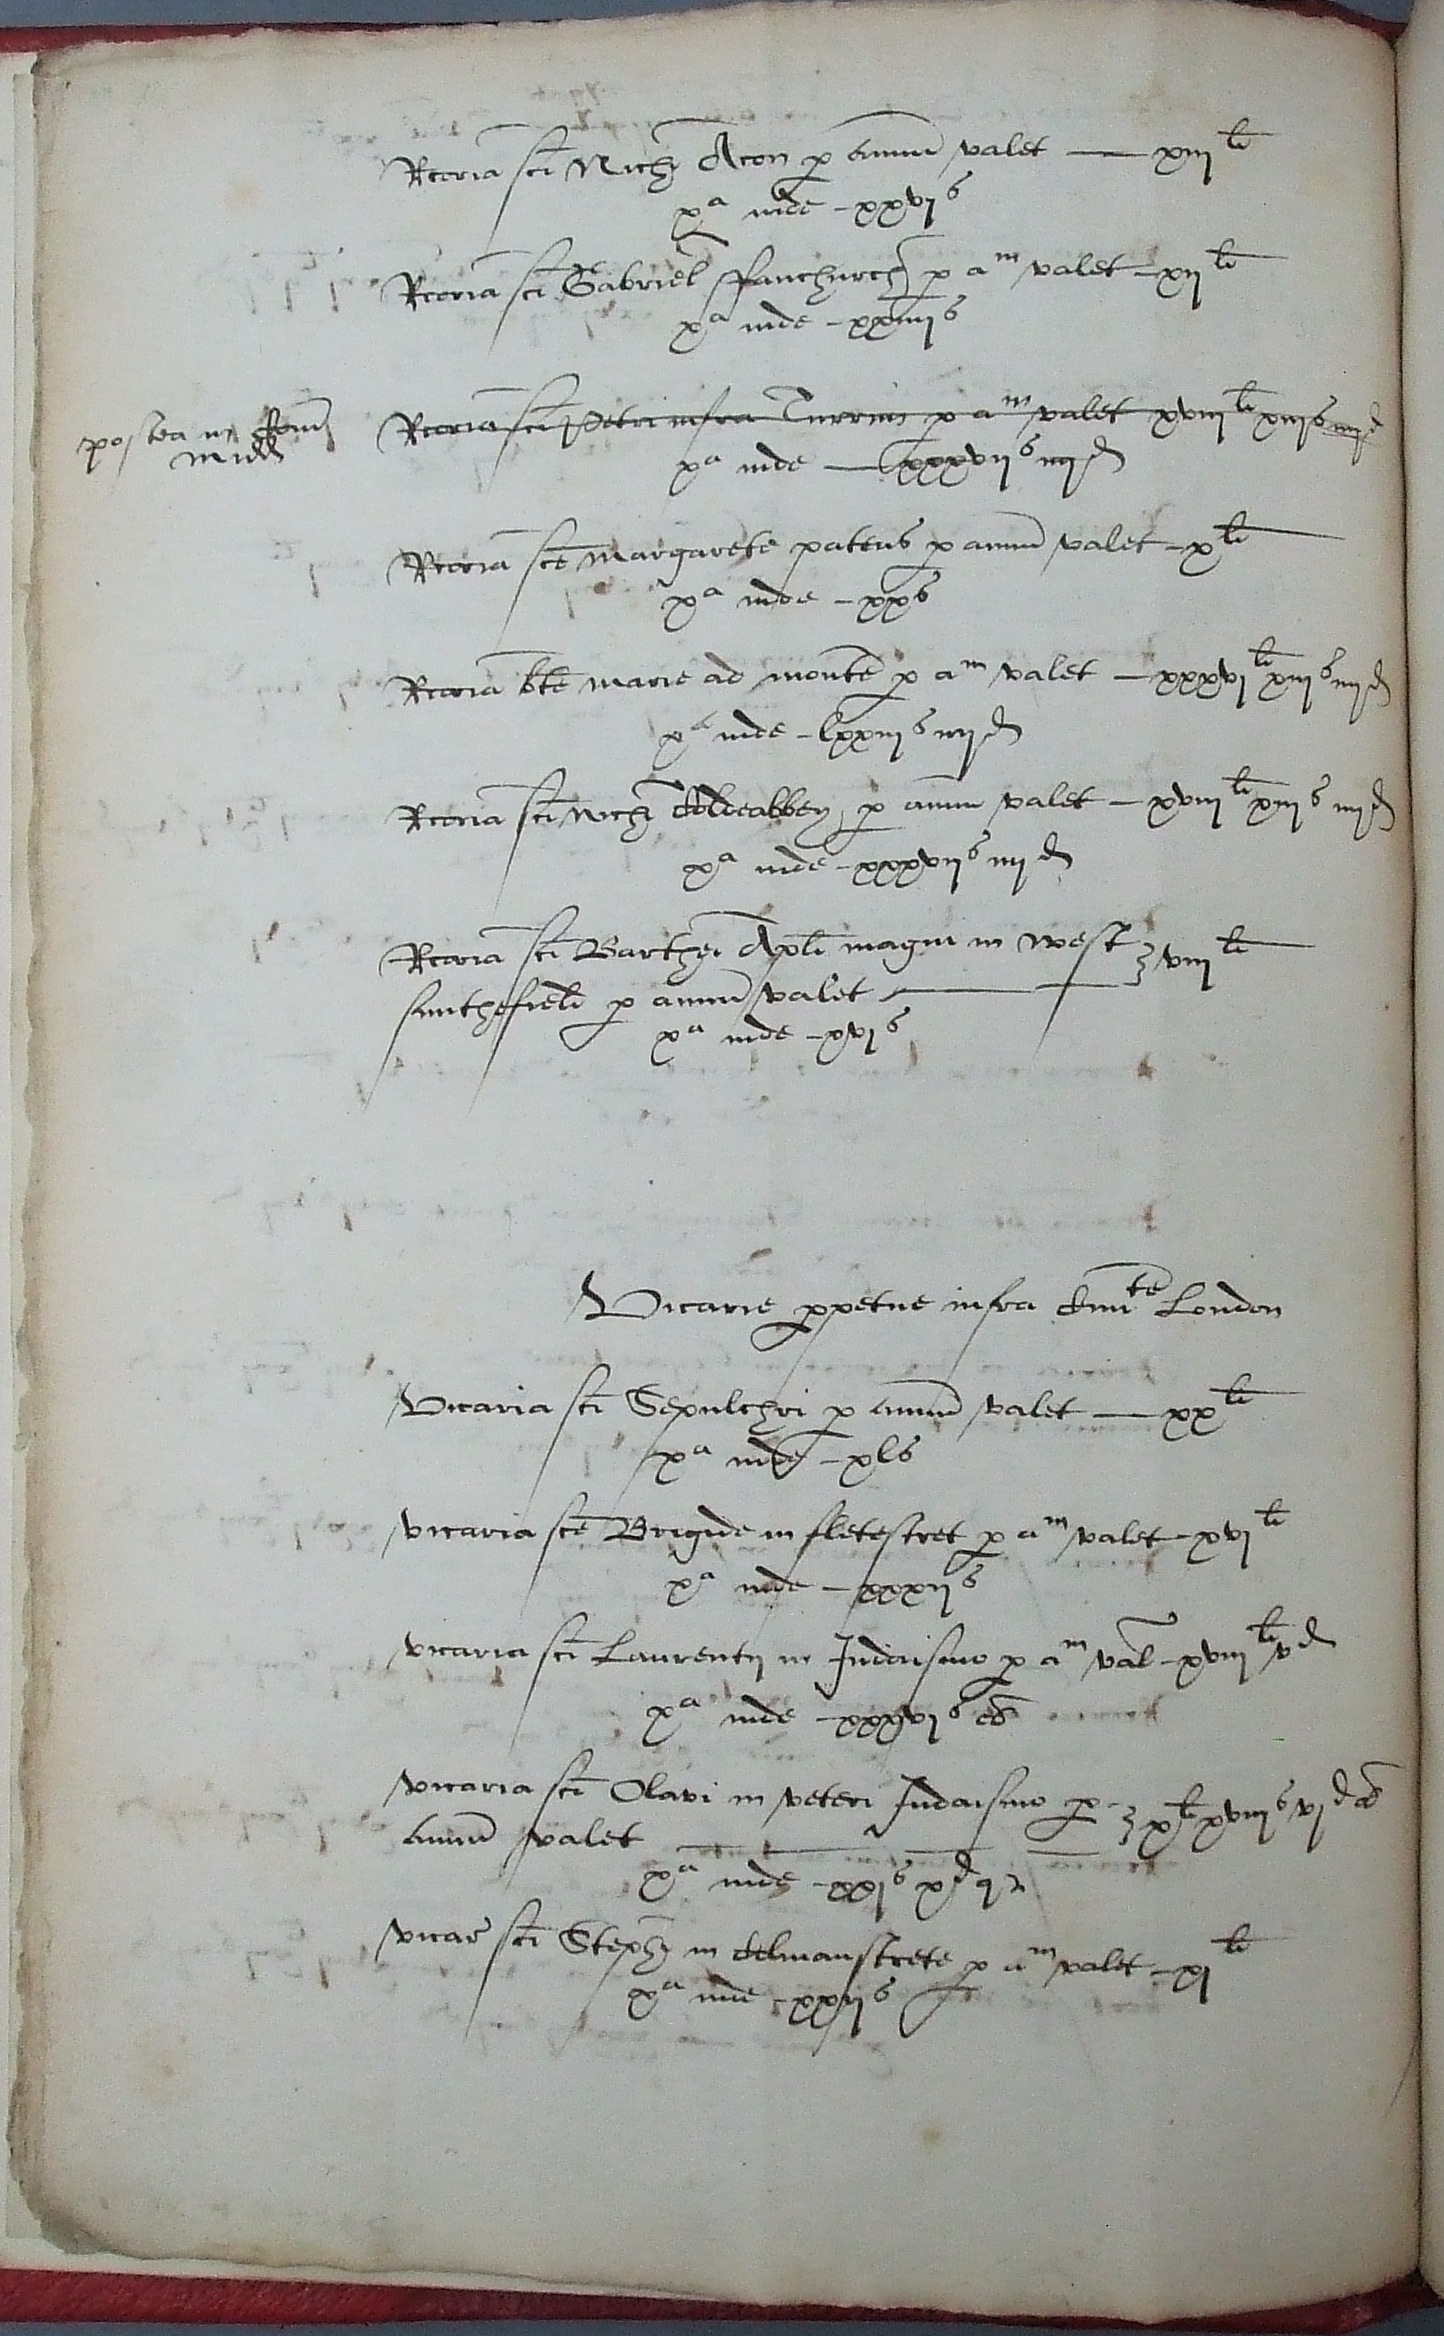 Rcoria sci Nichi Acon p annu valet — xiij li
xa inde – xxvj s
Rcoria sci Gabriel ffanchurch p am valet – xij li
xa inde – xxiiij s
postea in Com
Midd
Rcoria sci Petri infra Turrim p am valet xviij li xiij s iiij d
xa inde — xxxvij s iiij d
Rcoria sce Margarete patens p annu valet – x li
xa inde – xx s
Rcoria bte Marie ad monte p am valet — xxxvj li xiij s iiij d
xa inde – lxxiij s iiij d
Rcoria sci Nichi Coldeabbey p annu valet – xviij li xiij s iiij d
xa inde – xxxvij s iiij d
Rcoria sci Barthi Apli magni in West
smithefield p annu valet — viij li
xa inde – xvj s
Vicarie ppetue infra Civitte London
Vicaria sci Sepulchri p annu valet — xx li
xa inde – xl s
Vicaria sce Brigide in fletestret p am valet – xvj li
xa inde – xxxij s
Vicaria sci Laurentij in Judaismo p am val – xviij li v d
xa inde – xxxvj s ob
Vicaria sci Olavi in veteri Judaismo p
annu valet — x li xviij s vj d ob
xa inde – xxj s x d qr
Vicar sci Stephi in Colmanstrete p am valet – xj li
xa inde – xxij s